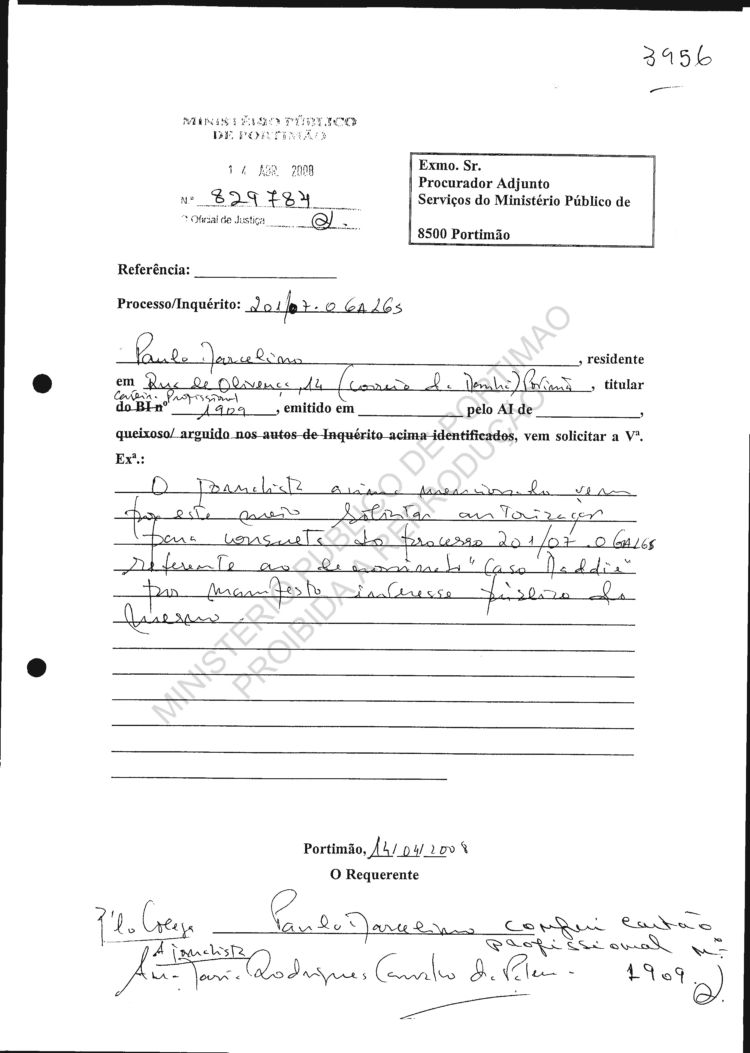 3956
MINISTÉRIO PÚBLICO
DE PORTIMÃO
14 ABR. 2008
Nº 829784
O Oficial de Justiça
Exmo. Sr.
Procurador Adjunto
Serviços do Ministério Público de
8500 Portimão
Referência:
Processo/Inquérito: 201/07.0 GALGS
Paulo Marcelino, residente
em Rua de Olivença, 14 (Correio da Manhã) Portimão, titular
Carteira Profissional
do BI nº 1909, emitido em pelo AI de ,
queixoso/ arguido nos autos de Inquérito acima identificados, vem solicitar a Vª.
Exª.:
O jornalista acima mencionado vem
por este meio solicitar autorização
para consulta do processo 201/07.0 GALGS
referente ao denominado "Caso Maddie"
por manifesto interesse público do
mesmo.
MINISTERIO PUBLICO DE PORTIMAO
PROIBIDA A REPRODUÇÃO
Portimão, 14/04/2008
O Requerente
P'lo Colega Paulo Marcelino conferi cartão
profissional nº
A jornalista
Ana Maria Rodrigues Carvalho de 1909